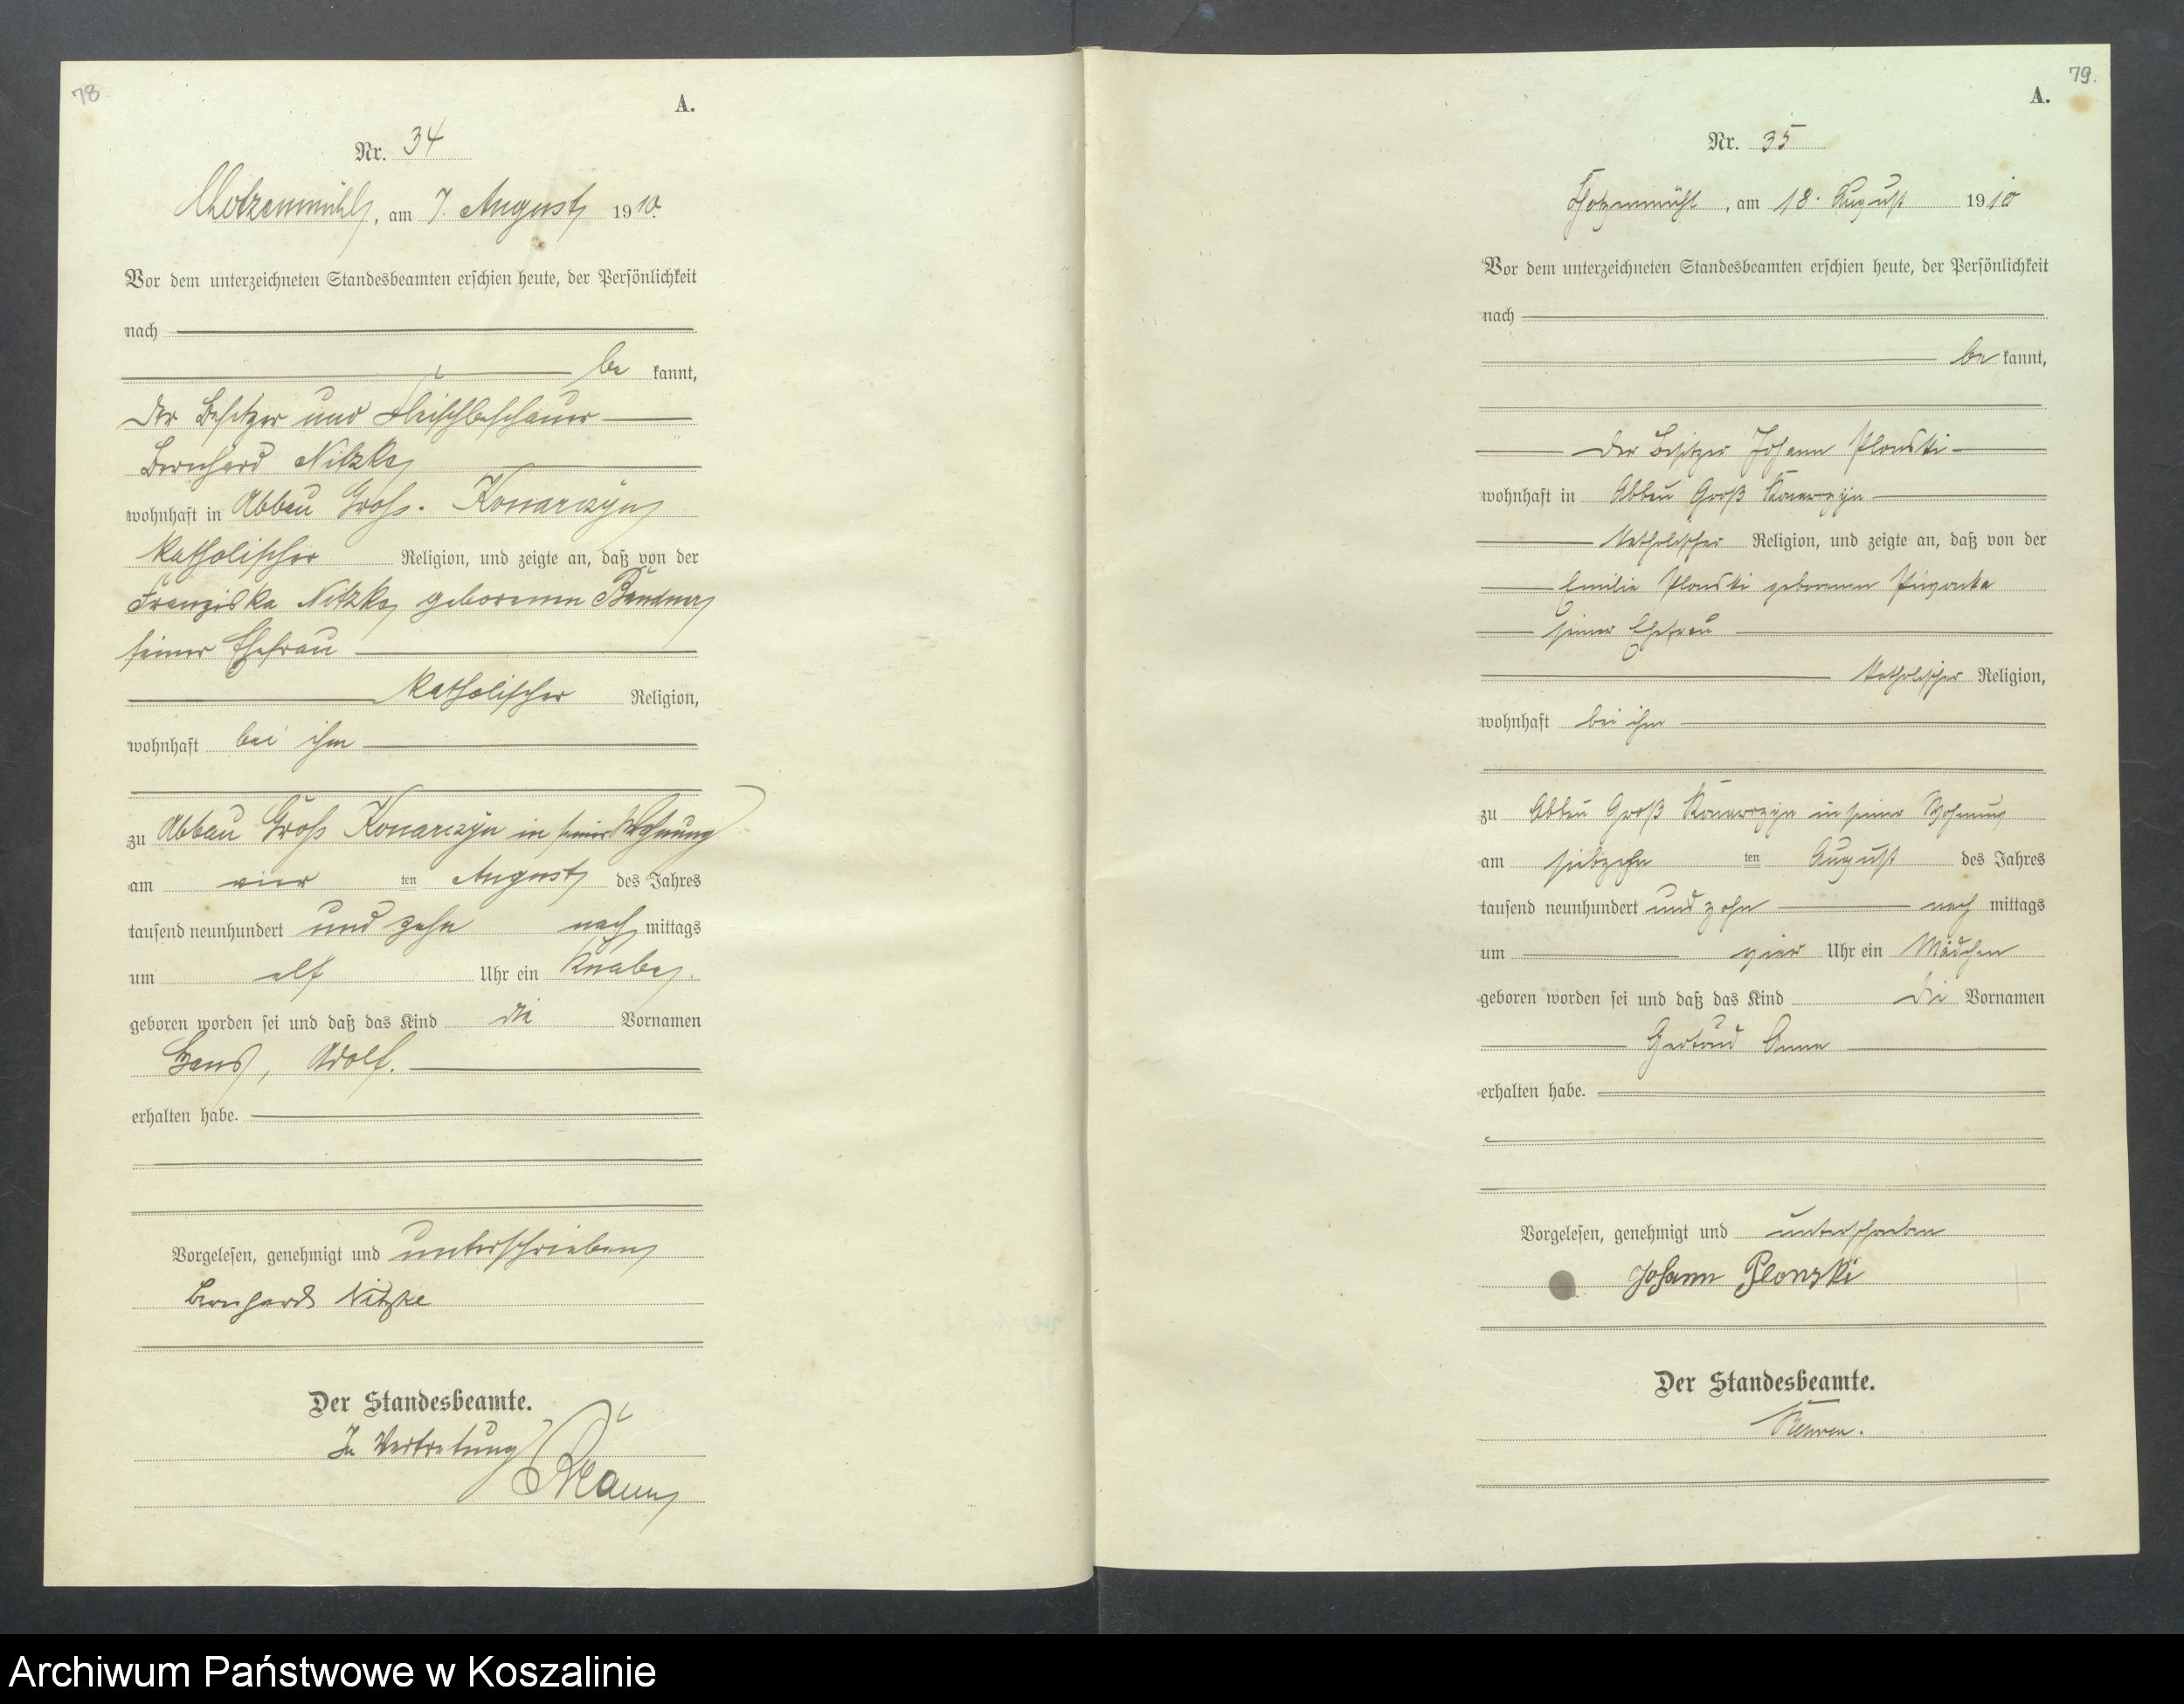 78.
A.
Nr. 34
Chotzenmühl, am 7. August 1910.
Vor dem unterzeichneten Standesbeamten erschien heute, der Persönlichkeit
nach
be kannt,
der Besitzer und Fleischbeschauer
Bernhard Nitzke
wohnhaft in Abbau Groß. Konarczyn
katholischer Religion, und zeigte an, daß von der
Franziska Nitzke geborenen
seiner Ehefrau
katholischer Religion,
wohnhaft bei ihm
zu Abbau Groß Konarczyn in seiner Wohnung
am vier ten August des Jahres
tausend neunhundert und zehn nach mittags
um elf Uhr ein Knabe
geboren worden sei und daß das Kind die Vornamen
Hans, Adolf.
erhalten habe.
Vorgelesen, genehmigt und unterschrieben
Bernhard Nitzke
Der Standesbeamte.
In Vertretung
79.
A.
Nr. 35
Chotzenmühl, am 18. August 1910
Vor dem unterzeichneten Standesbeamten erschien heute, der Persönlichkeit
nach
be kannt,
der Besitzer Johann Plonski
wohnhaft in Abbau Groß Konarczyn
katholischer Religion, und zeigte an, daß von der
Emilie Plonski geborenen
seiner Ehefrau
katholischer Religion,
wohnhaft bei ihm
zu Abbau Groß Konarczyn in seiner Wohnung
am siebzehn ten August des Jahres
tausend neunhundert und zehn nach mittags
um vier Uhr ein Mädchen
geboren worden sei und daß das Kind die Vornamen
Gertrud Anna
erhalten habe.
Vorgelesen, genehmigt und unterschrieben
Johann Plonski
Der Standesbeamte.
Archiwum Państwowe w Koszalinie